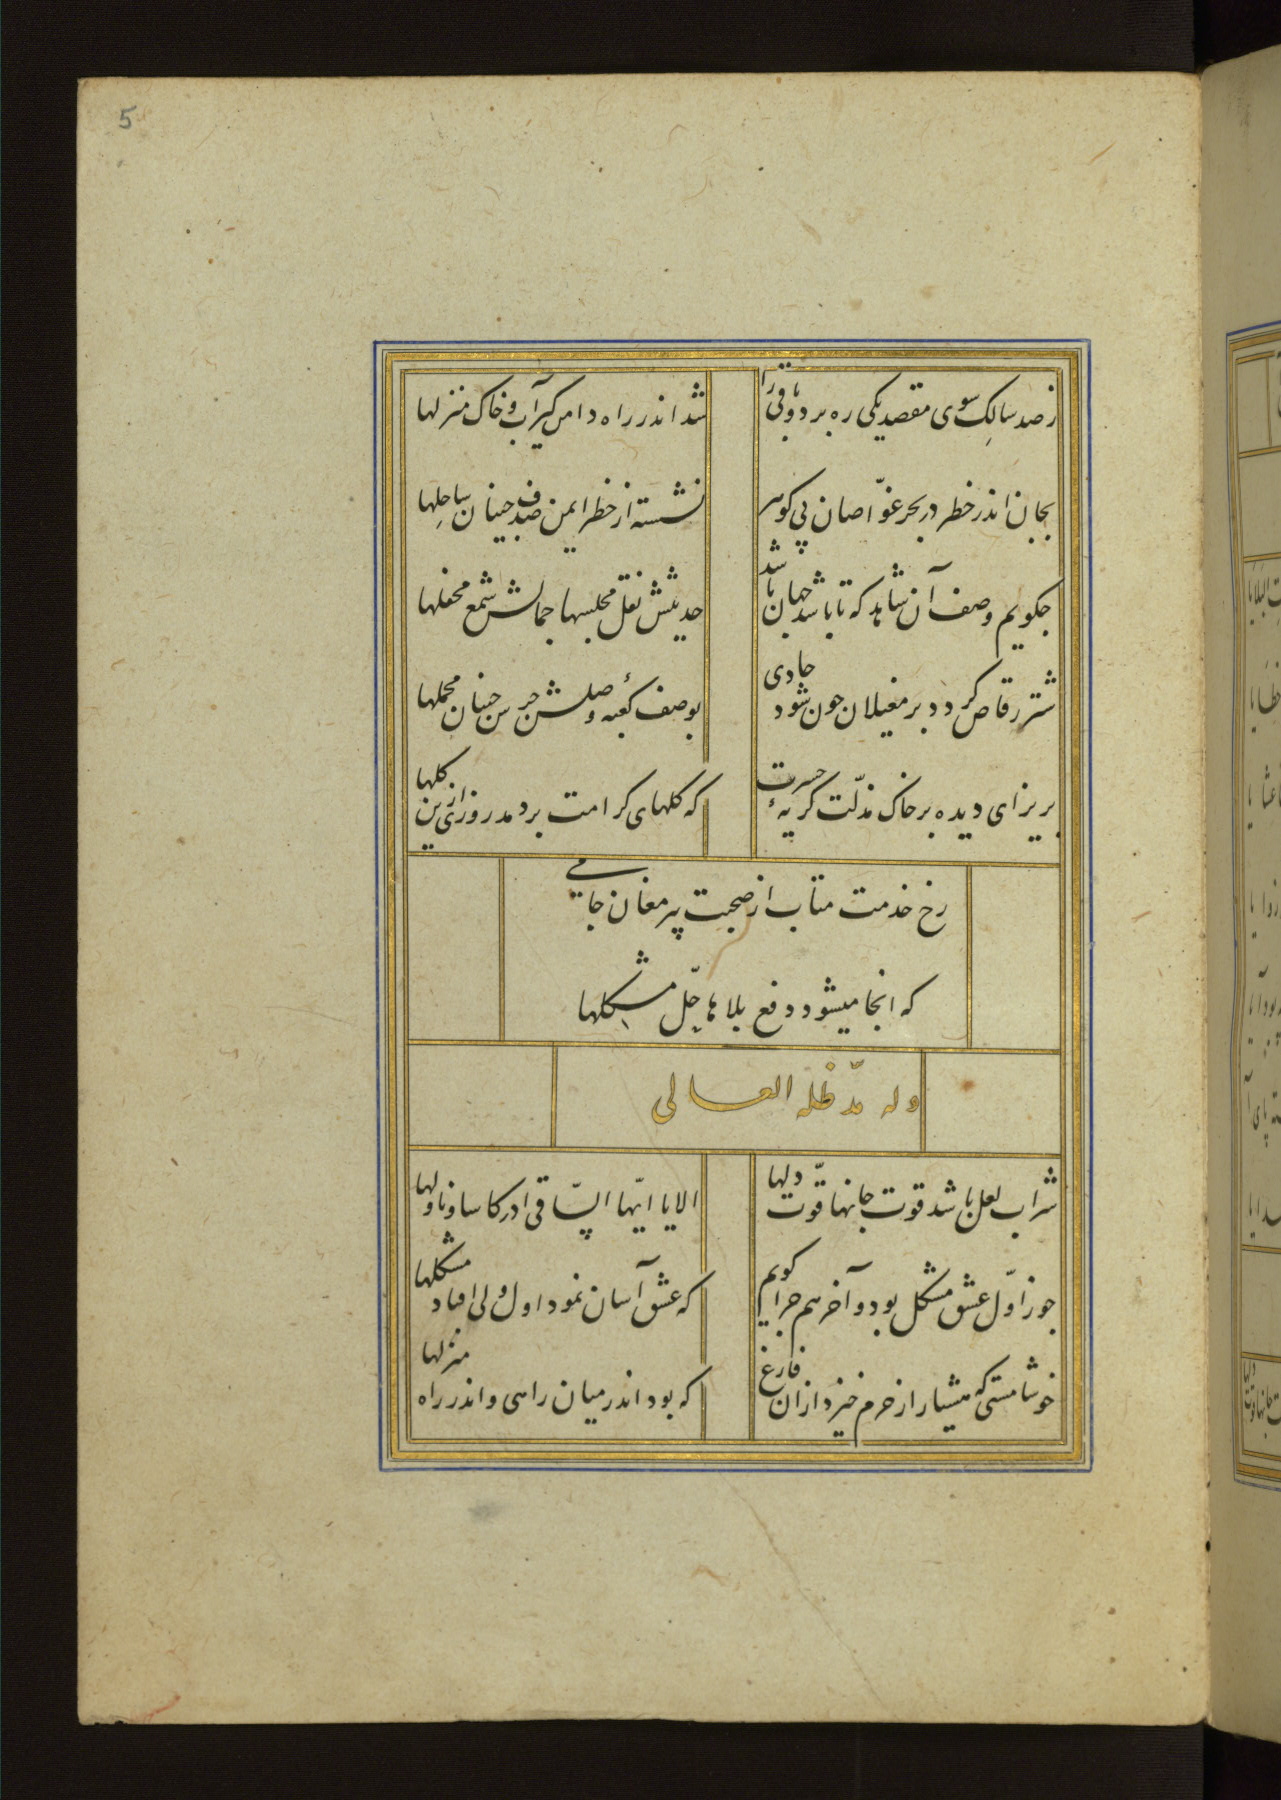 5
ز صد سالِک سوی مقصد یکی ره برد و باقی را
شد اندر راه دامن کیر آب و خاک منزلها
بجان اندر خطر در بحر غوّاصان پی کوهر
نشسته از خطر ایمن صدف چینان بساحِلها
چکویم وصف آن شاهد که تا باشد جهان باشد
حدیثش نقل مجلسها جمالش شمع محفلها
شتر رقاص کردد بر مغیلان چون شود حادی
بوصف کعبهٔ وصلش جرس جنبان محملها
بریز ای دیده بر خاک مذلّت کریهٔ حسرت
که کلهای کرامت بردمد روزی ازین کلها
رخ خدمت متاب از صحبت پیر مغان جامی
که انجا میشود دفع بلاها حِلّ مشکِلها
وله مدّ ظله العالی
شراب لعل باشد قوت جانها قوّت دلها
الا یا ایّها السّاقی ادر کاسا وناولها
چو ز اوّل عشق مشکل بود و آخر هم چرا کویم
که عشق آسان نمود اول ولی افتاد مشکلها
خوشا مستی که هشیار از خرم خیزد ازان فارغ
که بود اندر میان راهی و اندر راه منزلها